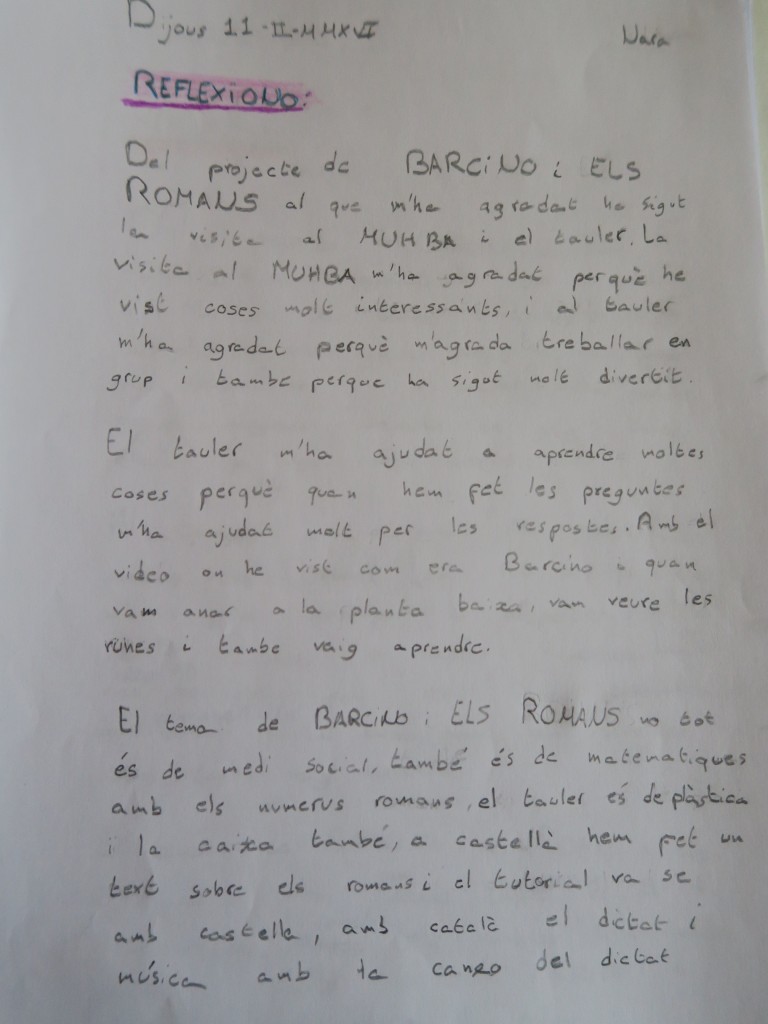 Dijous 11-II-MMXVI
Nara
REFLEXIONO:
Del projecte de BARCINO i ELS
ROMANS al que m'ha agradat ha sigut
la visita al MUHBA i el tauler. La
visita al MUHBA m'ha agradat perquè he
vist coses molt interessants, i al tauler
m'ha agradat perquè m'agrada treballar en
grup i tambe perque ha sigut molt divertit.
El tauler m'ha ajudat a aprendre moltes
coses perquè quan hem fet les preguntes
m'ha ajudat molt per les respostes. Amb el
video on he vist com era Barcino i quan
vam anar a la planta baixa, vam veure les
runes i tambe vaig aprendre.
El tema de BARCINO i ELS ROMANS no tot
és de medi social, també és de matematiques
amb els numerus romans, el tauler és de plàstica
i la caixa també, a castellà hem fet un
text sobre els romans i el tutorial va se
amb castella, amb català el dictat i
música amb la canço del dictat